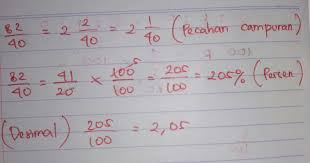 82/40 = 2 2/40 = 2 1/40 (Pecahan campuran)
82/40 = 41/20 × 100/100 5 = 205/100 = 205% (Persen)
(Desimal) 205/100 = 2,05